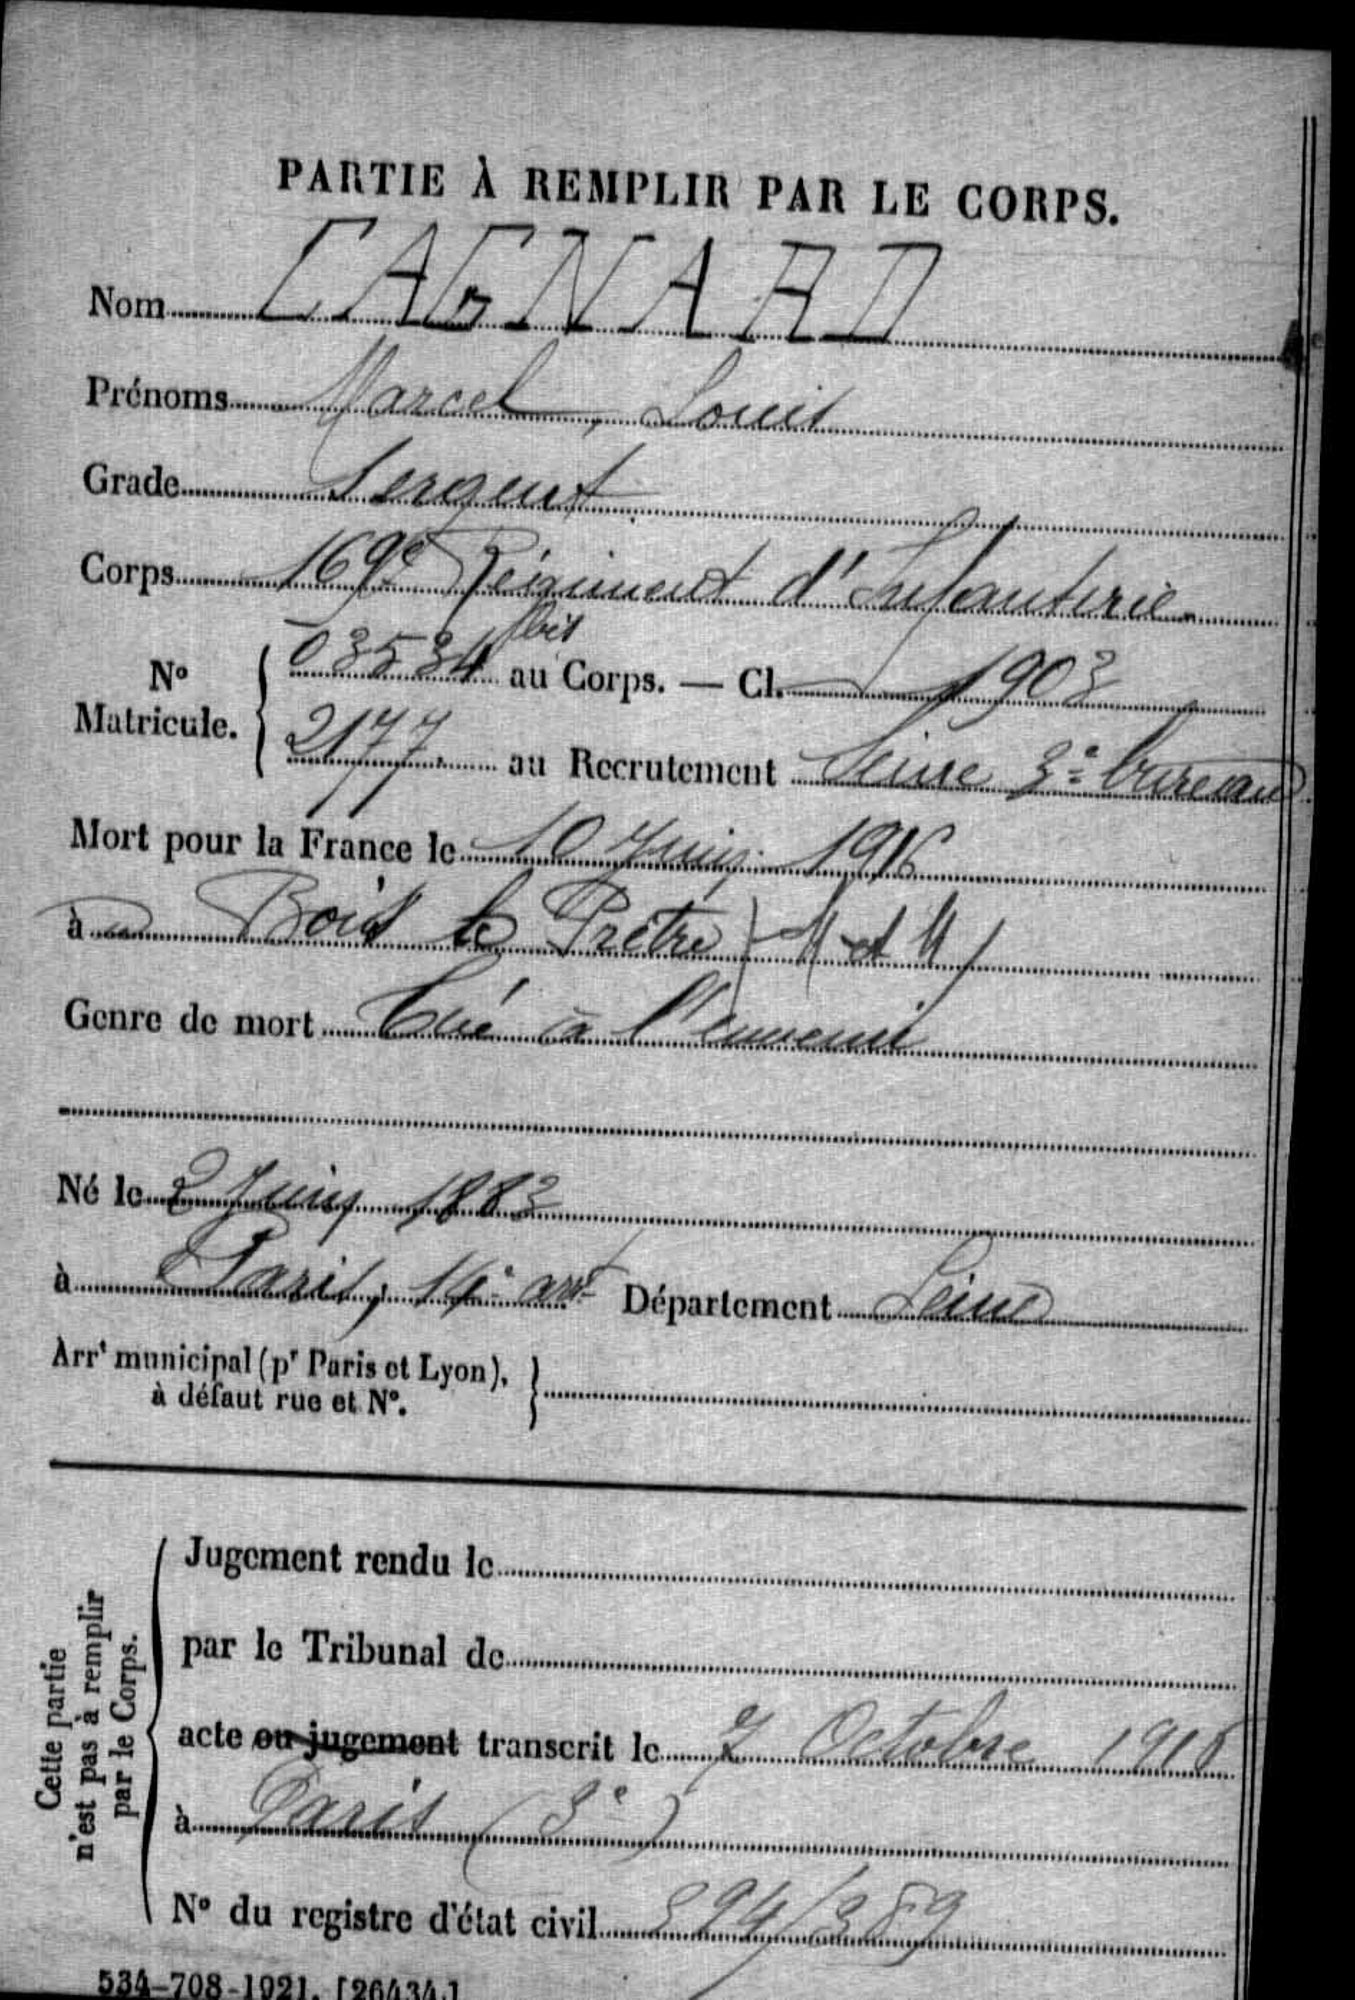 PARTIE À REMPLIR PAR LE CORPS.
Nom CAGNARD
Prénoms Marcel, Louis
Grade Sergent
Corps 169e Régiment d'Infanterie
bis
03534 au Corps. — Cl. 1903
N° Matricule.
2177 au Recrutement Seine 3e bureau
Mort pour la France le 10 Juin 1916
à Bois le Prêtre (M et M)
Genre de mort Tué à l'ennemi
Né le 2 Juin 1883
à Paris, 14e arrt Département Seine
Arrt municipal (pr Paris et Lyon),
à défaut rue et N°.
Cette partie
n'est pas à remplir
par le Corps.
Jugement rendu le
par le Tribunal de
acte ou jugement transcrit le 7 Octobre 1916
à Paris (3e)
N° du registre d'état civil 394/389
534-708-1921. [26434.]